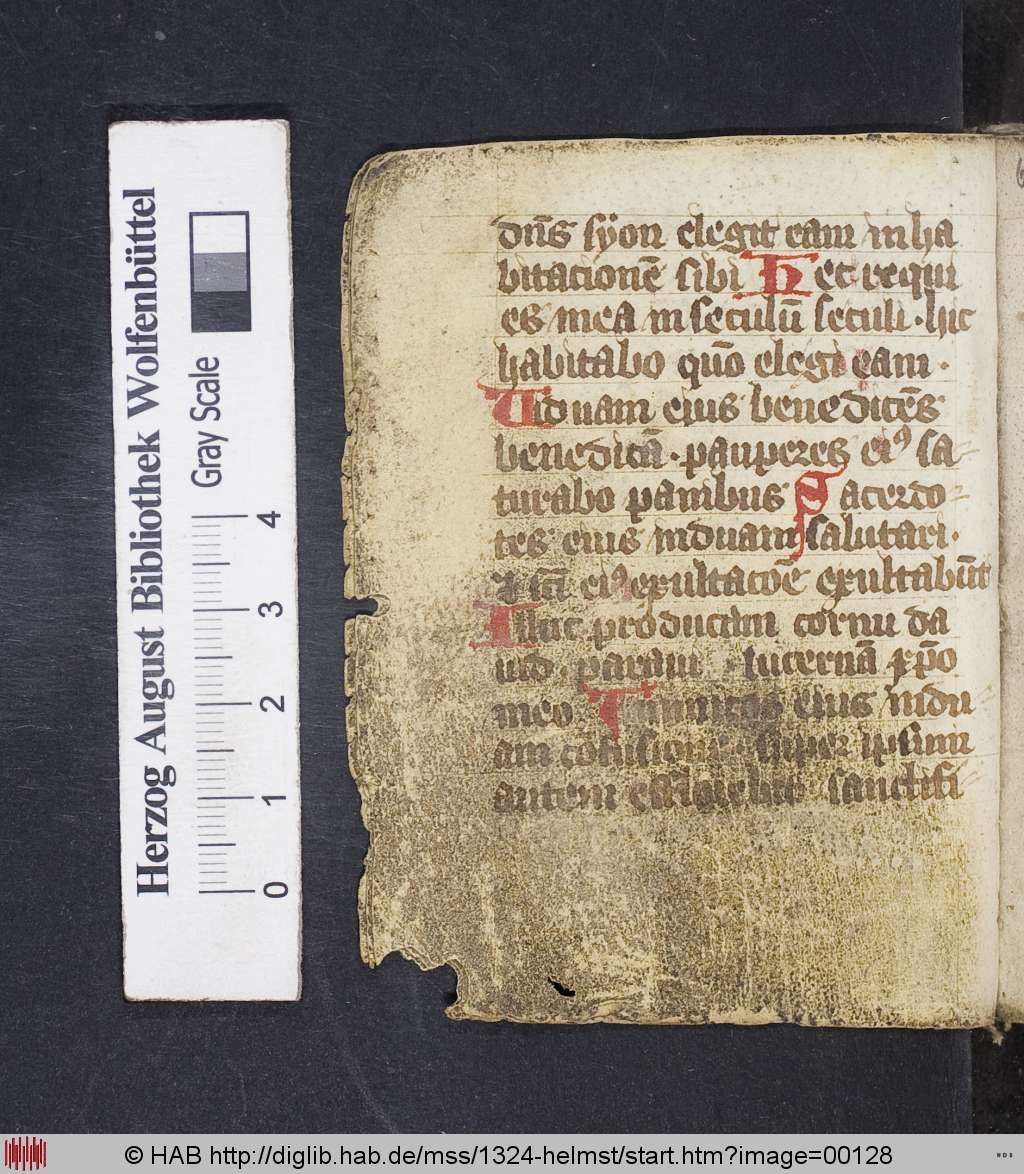 Herzog August Bibliothek Wolfenbüttel
Gray Scale
0 1 2 3 4
dn̄s syon elegit eam in ha
bitacionē sibi Hec requi
es mea in seculū seculi · hic
habitabo quō elegi eam ·
Viduam eius benedicēs
benedicā · pauperes eiꝰ sa
turabo panibus Sacerdo
tes eius induam salutari ·
et sc̄i eiꝰ exultacōe exultabūt
Illuc producam cornu da
uid · paraui lucernā xp̄o
meo Inimicos eius indu
am cōfusione · super ipsum
autem efflorebit sanctifi
© HAB http://diglib.hab.de/mss/1324-helmst/start.htm?image=00128